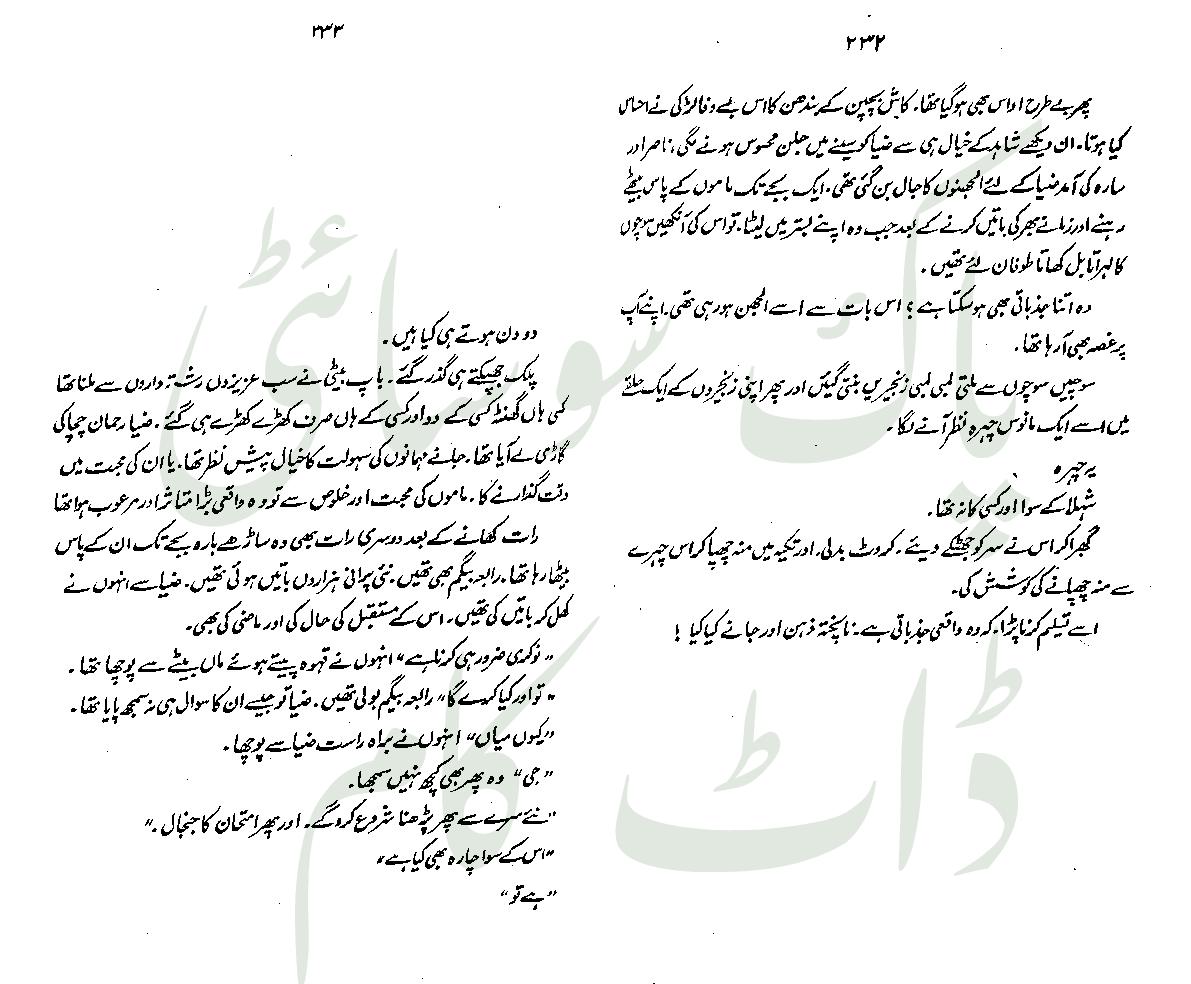 ۲۳۲
پھر بے طرح اداس بھی ہو گیا تھا۔ کاش بچپن کے بندھن کا اس بے وفا لڑکی نے احساس
کیا ہوتا۔ ان دیکھے شاہد کے خیال ہی سے ضیا کو سینے میں جلن محسوس ہونے لگی، ناصر اور
سارہ کی آمد ضیا کے لئے الجھنوں کا جال بن گئی تھی۔ ایک بجے تک ماموں کے پاس بیٹھے
رہنے اور زمانے بھر کی باتیں کرنے کے بعد جب وہ اپنے بستر میں لیٹا۔ تو اس کی آنکھیں سوچوں
کا لہراتا بل کھاتا طوفان لئے تھیں۔
وہ اتنا جذباتی بھی ہو سکتا ہے؟ اس بات سے اسے الجھن ہو رہی تھی۔ اپنے آپ
پر غصہ بھی آ رہا تھا۔
سوچیں سوچوں سے ملتی لمبی لمبی زنجیریں بنتی گئیں اور پھر اپنی زنجیروں کے ایک حلقے
میں اسے ایک مانوس چہرہ نظر آنے لگا۔
یہ چہرہ
شہلا کے سوا اور کسی کا نہ تھا۔
گھبرا کر اس نے سر کو جھٹکے دیئے۔ کروٹ بدلی۔ اور تکیہ میں منہ چھپا کر اس چہرے
سے منہ چھپانے کی کوشش کی۔
اسے تسلیم کرنا پڑا۔ کہ وہ واقعی جذباتی ہے۔ ناپختہ ذہن اور جانے کیا کیا!
۲۳۳
دو دن ہوتے ہی کیا ہیں۔
پلک جھپکتے ہی گذر گئے۔ باپ بیٹی نے سب عزیزوں رشتہ داروں سے ملنا تھا
کسی ہاں گھنٹہ کسی کے دو اور کسی کے ہاں صرف کھڑے کھڑے ہی گئے۔ ضیا رحمان چچا کی
گاڑی لے آیا تھا۔ جانے مہمانوں کی سہولت کا خیال پیش نظر تھا۔ یا ان کی محبت میں
وقت گذارنے کا۔ ماموں کی محبت اور خلوص سے تو وہ واقعی بڑا متاثر اور مرعوب ہوا تھا
رات کھانے کے بعد دوسری رات بھی وہ ساڑھے بارہ بجے تک ان کے پاس
بیٹھا رہا تھا۔ رابعہ بیگم بھی تھیں۔ نئی پرانی ہزاروں باتیں ہوئی تھیں۔ ضیا سے انہوں نے
کھل کر باتیں کی تھیں۔ اس کے مستقبل کی حال کی اور ماضی کی بھی۔
"نوکری ضرور ہی کرنا ہے" انہوں نے قہوہ پیتے ہوئے ماں بیٹے سے پوچھا تھا۔
"تو اور کیا کرے گا" رابعہ بیگم بولی تھیں۔ ضیا تو جیسے ان کا سوال ہی نہ سمجھ پایا تھا۔
"کیوں میاں" انہوں نے براہ راست ضیا سے پوچھا۔
"جی" وہ پھر بھی کچھ نہیں سمجھا۔
"نئے سرے سے پھر پڑھنا شروع کرو گے۔ اور پھر امتحان کا جنجال۔"
"اس کے سوا چارہ بھی کیا ہے"
"ہے تو"
پاک سوسائٹی
ڈاٹ کام